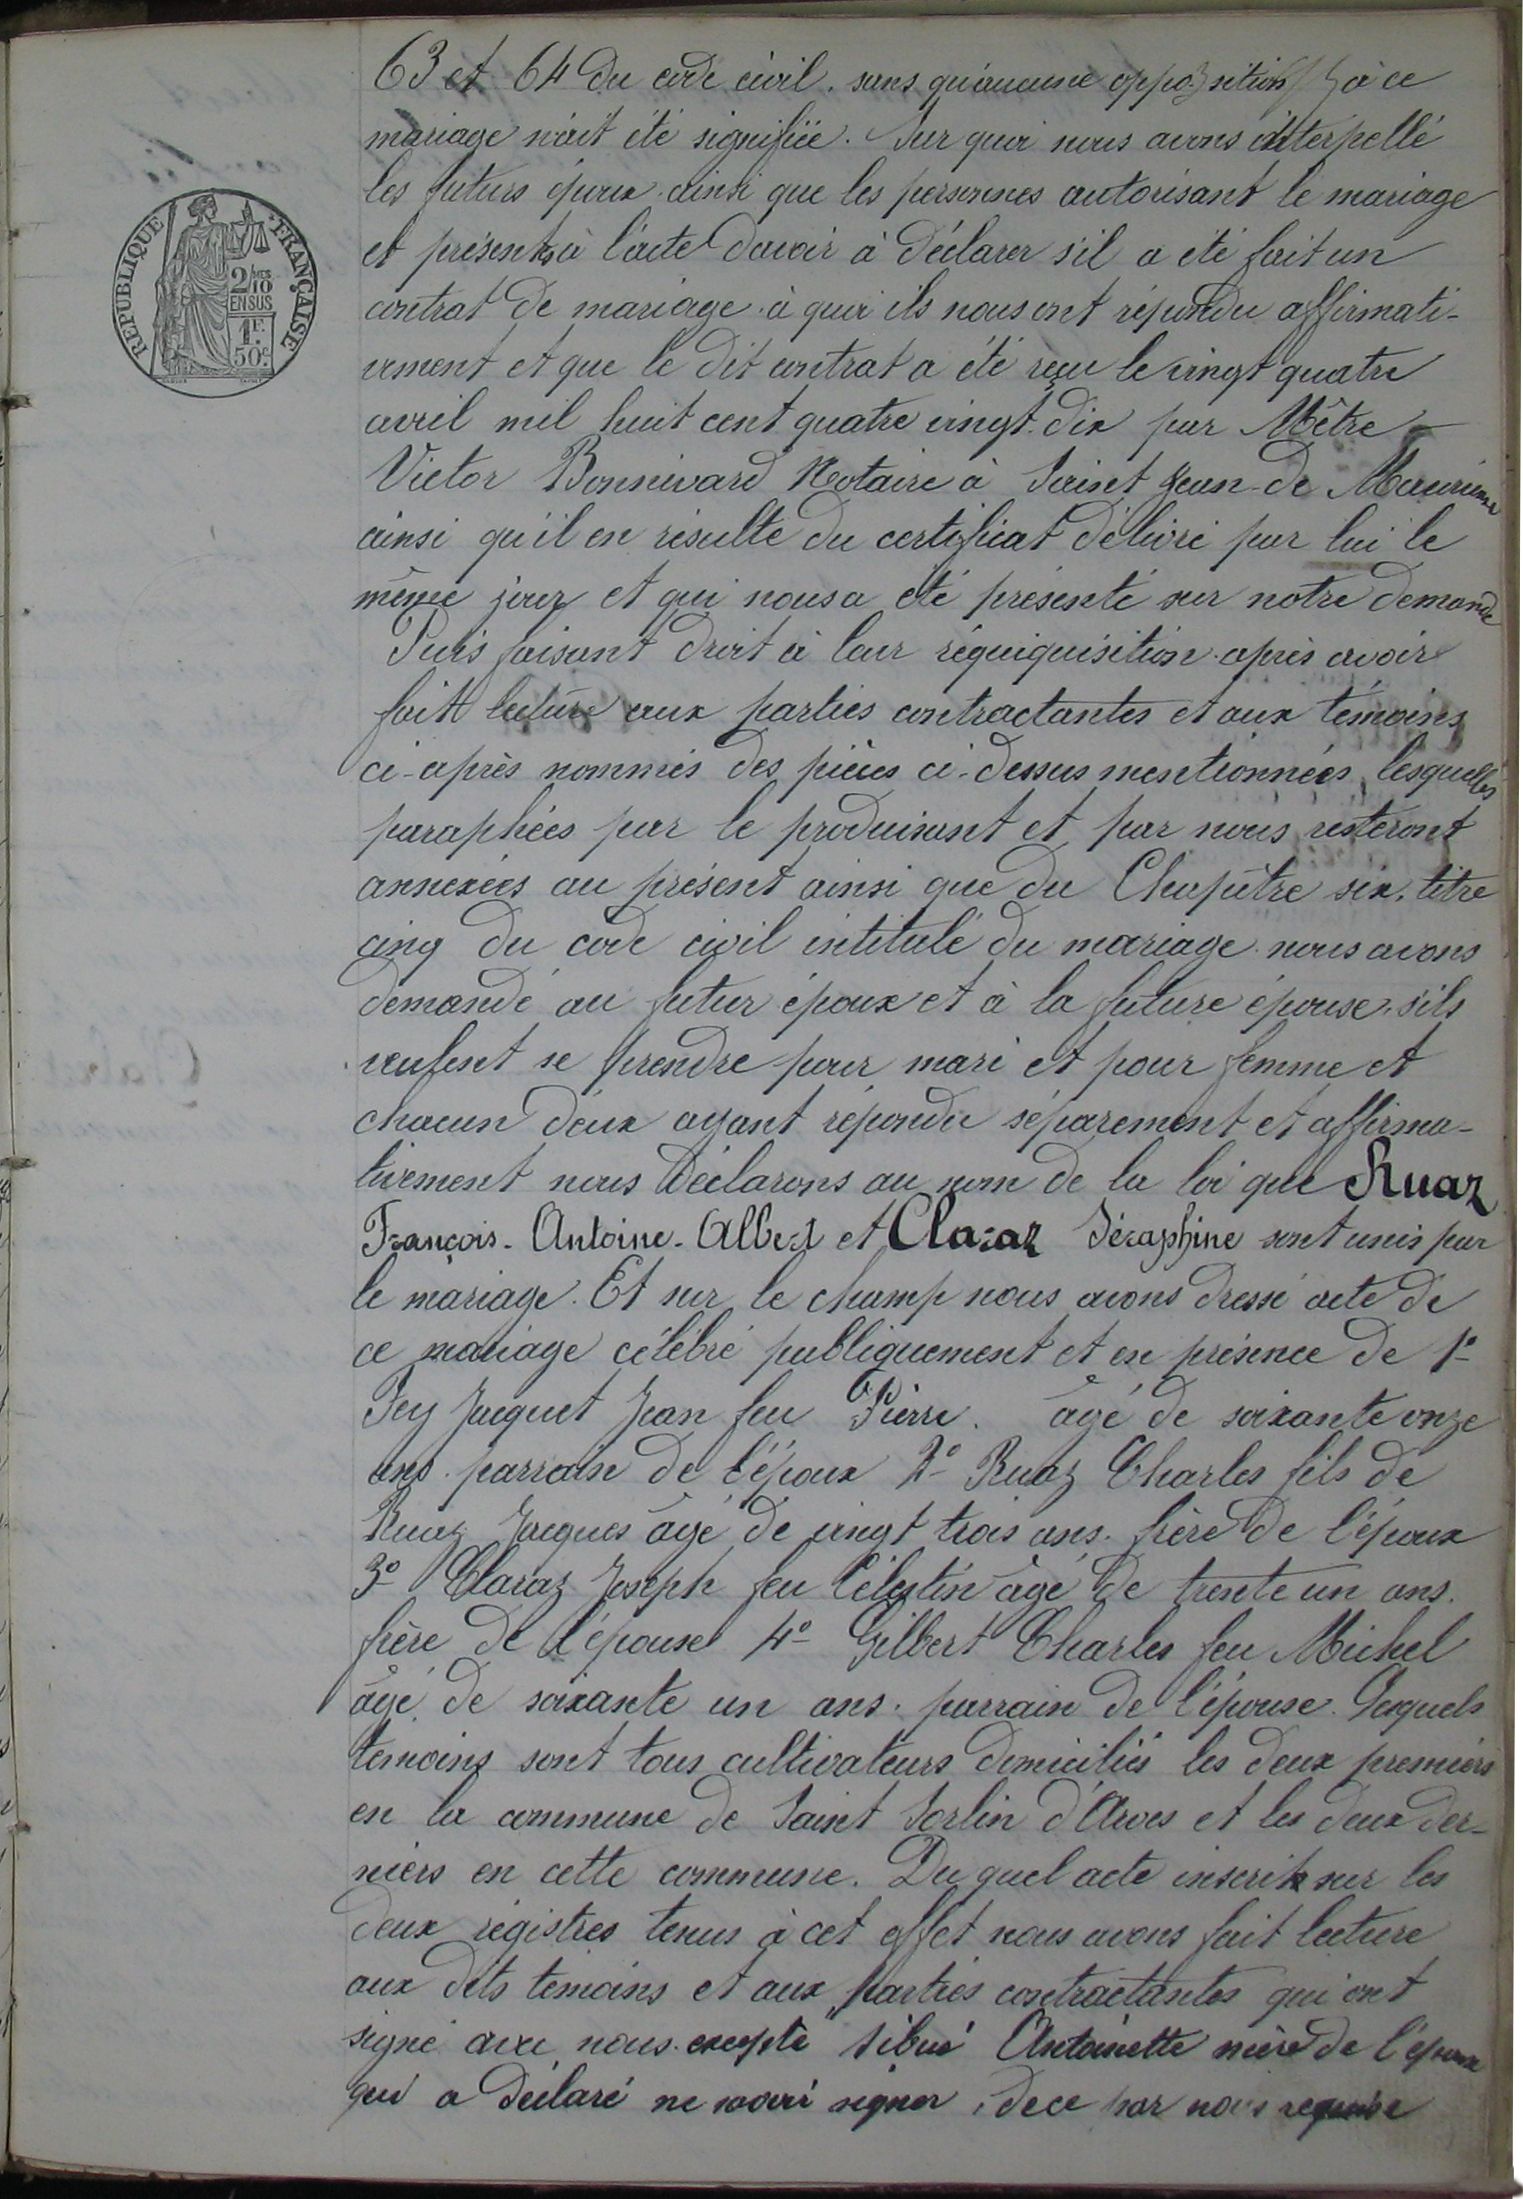 63 et 64 du code civil. sans qu'aucune opposition à ce
mariage n'ait été signifiée. Sur quoi nous avons interpellé
les futurs époux ainsi que les personnes autorisant le mariage
et présents à l'acte d'avoir à déclarer s'il a été fait un
contrat de mariage à quoi ils nous ont répondu affirmati-
vement et que le dit contrat a été reçu le vingt quatre
avril mil huit cent quatre vingt dix par Mêtre
Victor Bonnivard Notaire à Saint Jean de Maurienne
ainsi qu'il en résulte du certificat délivré par lui le
même jour et qui nous a été présenté sur notre demande
Puis faisant droit à leur réquiquisition après avoir
fait lecture aux parties contractantes et aux témoins
ci-après nommés des pièces ci-dessus mentionnées, lesquelles
paraphées par le produisant et par nous resteront
annexées au présent ainsi que du Chapître six, titre
cinq du code civil intitulé du mariage nous avons
demandé au futur époux et à la future épouse s'ils
veulent se prendre pour mari et pour femme et
chacun d'eux ayant répondu séparement et affirma-
tivement nous déclarons au nom de la loi que Ruaz
François-Antoine-Albert et Claraz Séraphine sont unis par
le mariage. Et sur le champ nous avons dressé acte de
ce mariage célébré publiquement et en présence de 1º
Fey Jacquet Jean feu Pierre. âgé de soixante onze
ans. parrain de l'époux 2º Ruaz Charles fils de
Ruaz Jacques âgé de vingt trois ans. frère de l'époux
3º Claraz Joseph feu Célestin âgé de trente un ans.
frère de l'épouse 4º Gilbert Charles feu Michel
âgé de soixante un ans. parrain de l'épouse. Lesquels
témoins sont tous cultivateurs domiciliés les deux premiers
en la commune de Saint Sorlin d'Arves et les deux der-
niers en cette commune. Du quel acte inscrit sur les
deux régistres tenus à cet effet nous avons fait lecture
aux dits temoins et aux parties contractantes qui ont
signé avec nous. excepté Sibué Antoinette mère de l'époux
qui a déclaré ne savoir signer, de ce par nous requise
RÉPUBLIQUE FRANÇAISE
2/10 MES
EN SUS
1F.
50c